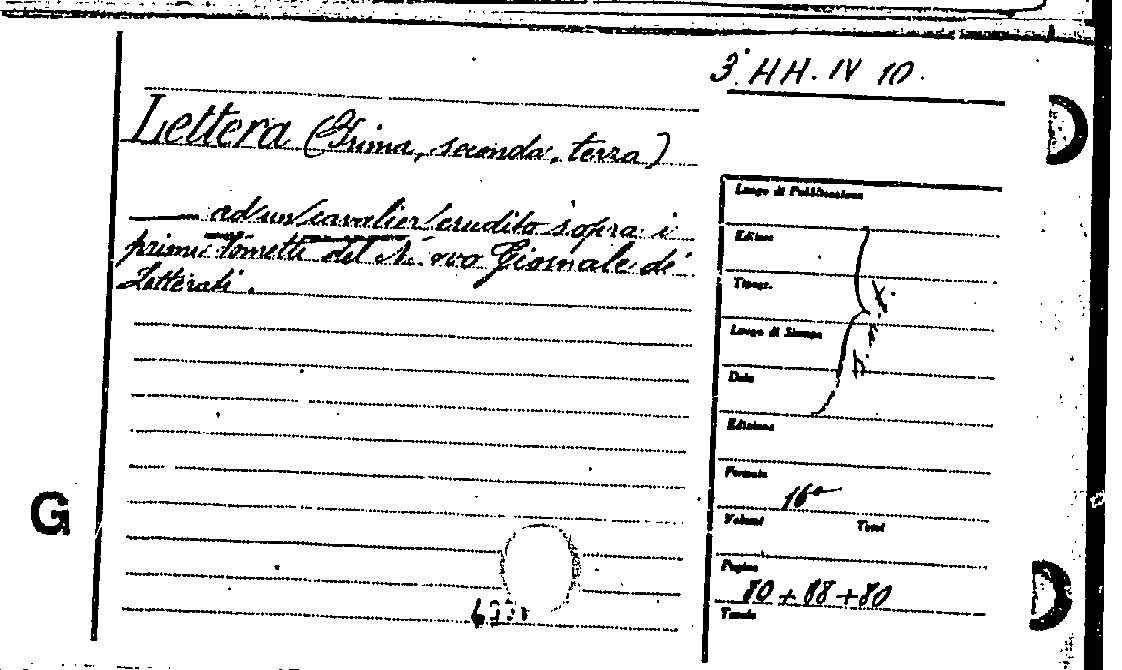 3° HH. IV 10.
Lettera (Prima, seconda, terza)
ad un cavalier erudito sopra i
primi tometti del Nuovo Giornale de'
Letterati.
Luogo di Pubblicazione
Editore
Tipogr.
Luogo di Stampa
Data
n. n.
Edizione
Formato
16°
Volumi Tomi
Pagine
80 + 88 + 80
Tavole
G